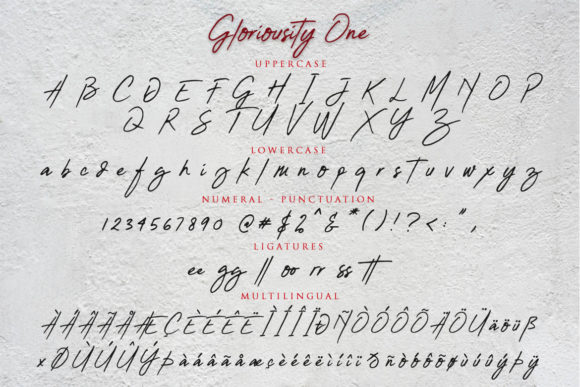 Gloriousity One
UPPERCASE
A B C D E F G H I J K L M N O P
Q R S T U V W X Y Z
LOWERCASE
a b c d e f g h i j k l m n o p q r s t u v w x y z
NUMERAL - PUNCTUATION
1 2 3 4 5 6 7 8 9 0 @ # $ % ^ & * ( ) ! ? < : " ,
LIGATURES
ee gg ll oo rr ss tt
MULTILINGUAL
À Á Â Ã Å Æ Ç È É Ê Ë Ì Í Î Ï Ð Ñ Ò Ó Ô Õ Ä Ö Ü ä ö ü ß
× Ø Ù Ú Û Ý Þ à á â ã å æ ç è é ê ë ì í î ï ð ñ ò ó ô õ ø ù ú û ý þ ÿ